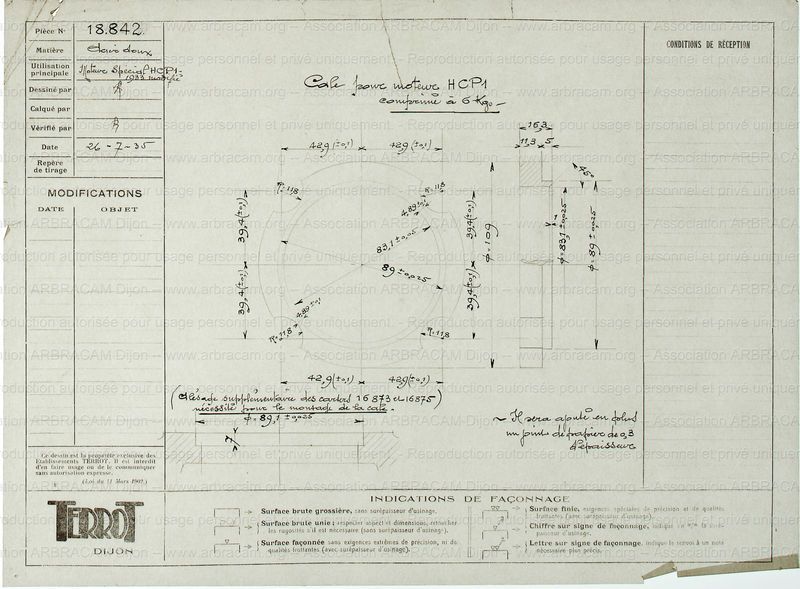 Pièce N° 18.842.
Matière
Utilisation principale Moteur Spécial HCP1
1933 modifié
Dessiné par
Calqué par
Vérifié par
Date 26 - 7 - 35
Repère de tirage
MODIFICATIONS
DATE OBJET
CONDITIONS DE RÉCEPTION
Cale pour moteur HCP1
comprimé à 6 Kgs
42,9 (±0,1) 42,9 (±0,1)
16,3
11,3 5
45°
R=11,8 R=11,8
4,89±0,1
39,4 (±0,1) 39,4 (±0,1)
83,1 ±0,05
φ=109
1
φ=83,1 ±0,025
φ=89 ±0,025
89 ±0,025
39,4 (±0,1) 39,4 (±0,1)
4,89±0,1
R=11,8 R=11,8
42,9 (±0,1) 42,9 (±0,1)
(Alésage supplémentaire des carters 16873 et 16875)
nécessité pour le montage de la cale.
φ=89,1 ±0,025
7
~ Il sera ajouté en plus
un joint de papier de 0,3
d'épaisseur
Ce dessin est la propriété exclusive des
Etablissements TERROT. Il est interdit
d'en faire usage ou de le communiquer
sans autorisation expresse.
(Loi du 11 Mars 1902.)
TERROT
DIJON
INDICATIONS DE FAÇONNAGE
Surface brute grossière, sans surépaisseur d'usinage.
Surface brute unie; respecter aspect et dimensions, retoucher
les rugosités s'il est nécessaire (sans surépaisseur d'usinage).
Surface façonnée sans exigences extrêmes de précision, ni de
qualités frottantes (avec surépaisseur d'usinage).
Surface finie, exigences spéciales de précision et de qualités
frottantes (avec surépaisseur d'usinage).
Chiffre sur signe de façonnage, indique en m/m la
d'usinage.
Lettre sur signe de façonnage, indique le renvoi à un nota
nécessaire plus précis.
www.arbracam.org -- Association ARBRACAM Dijon -- www.arbracam.org -- Association ARBRACAM Dijon
Reproduction autorisée pour usage personnel et privé uniquement.